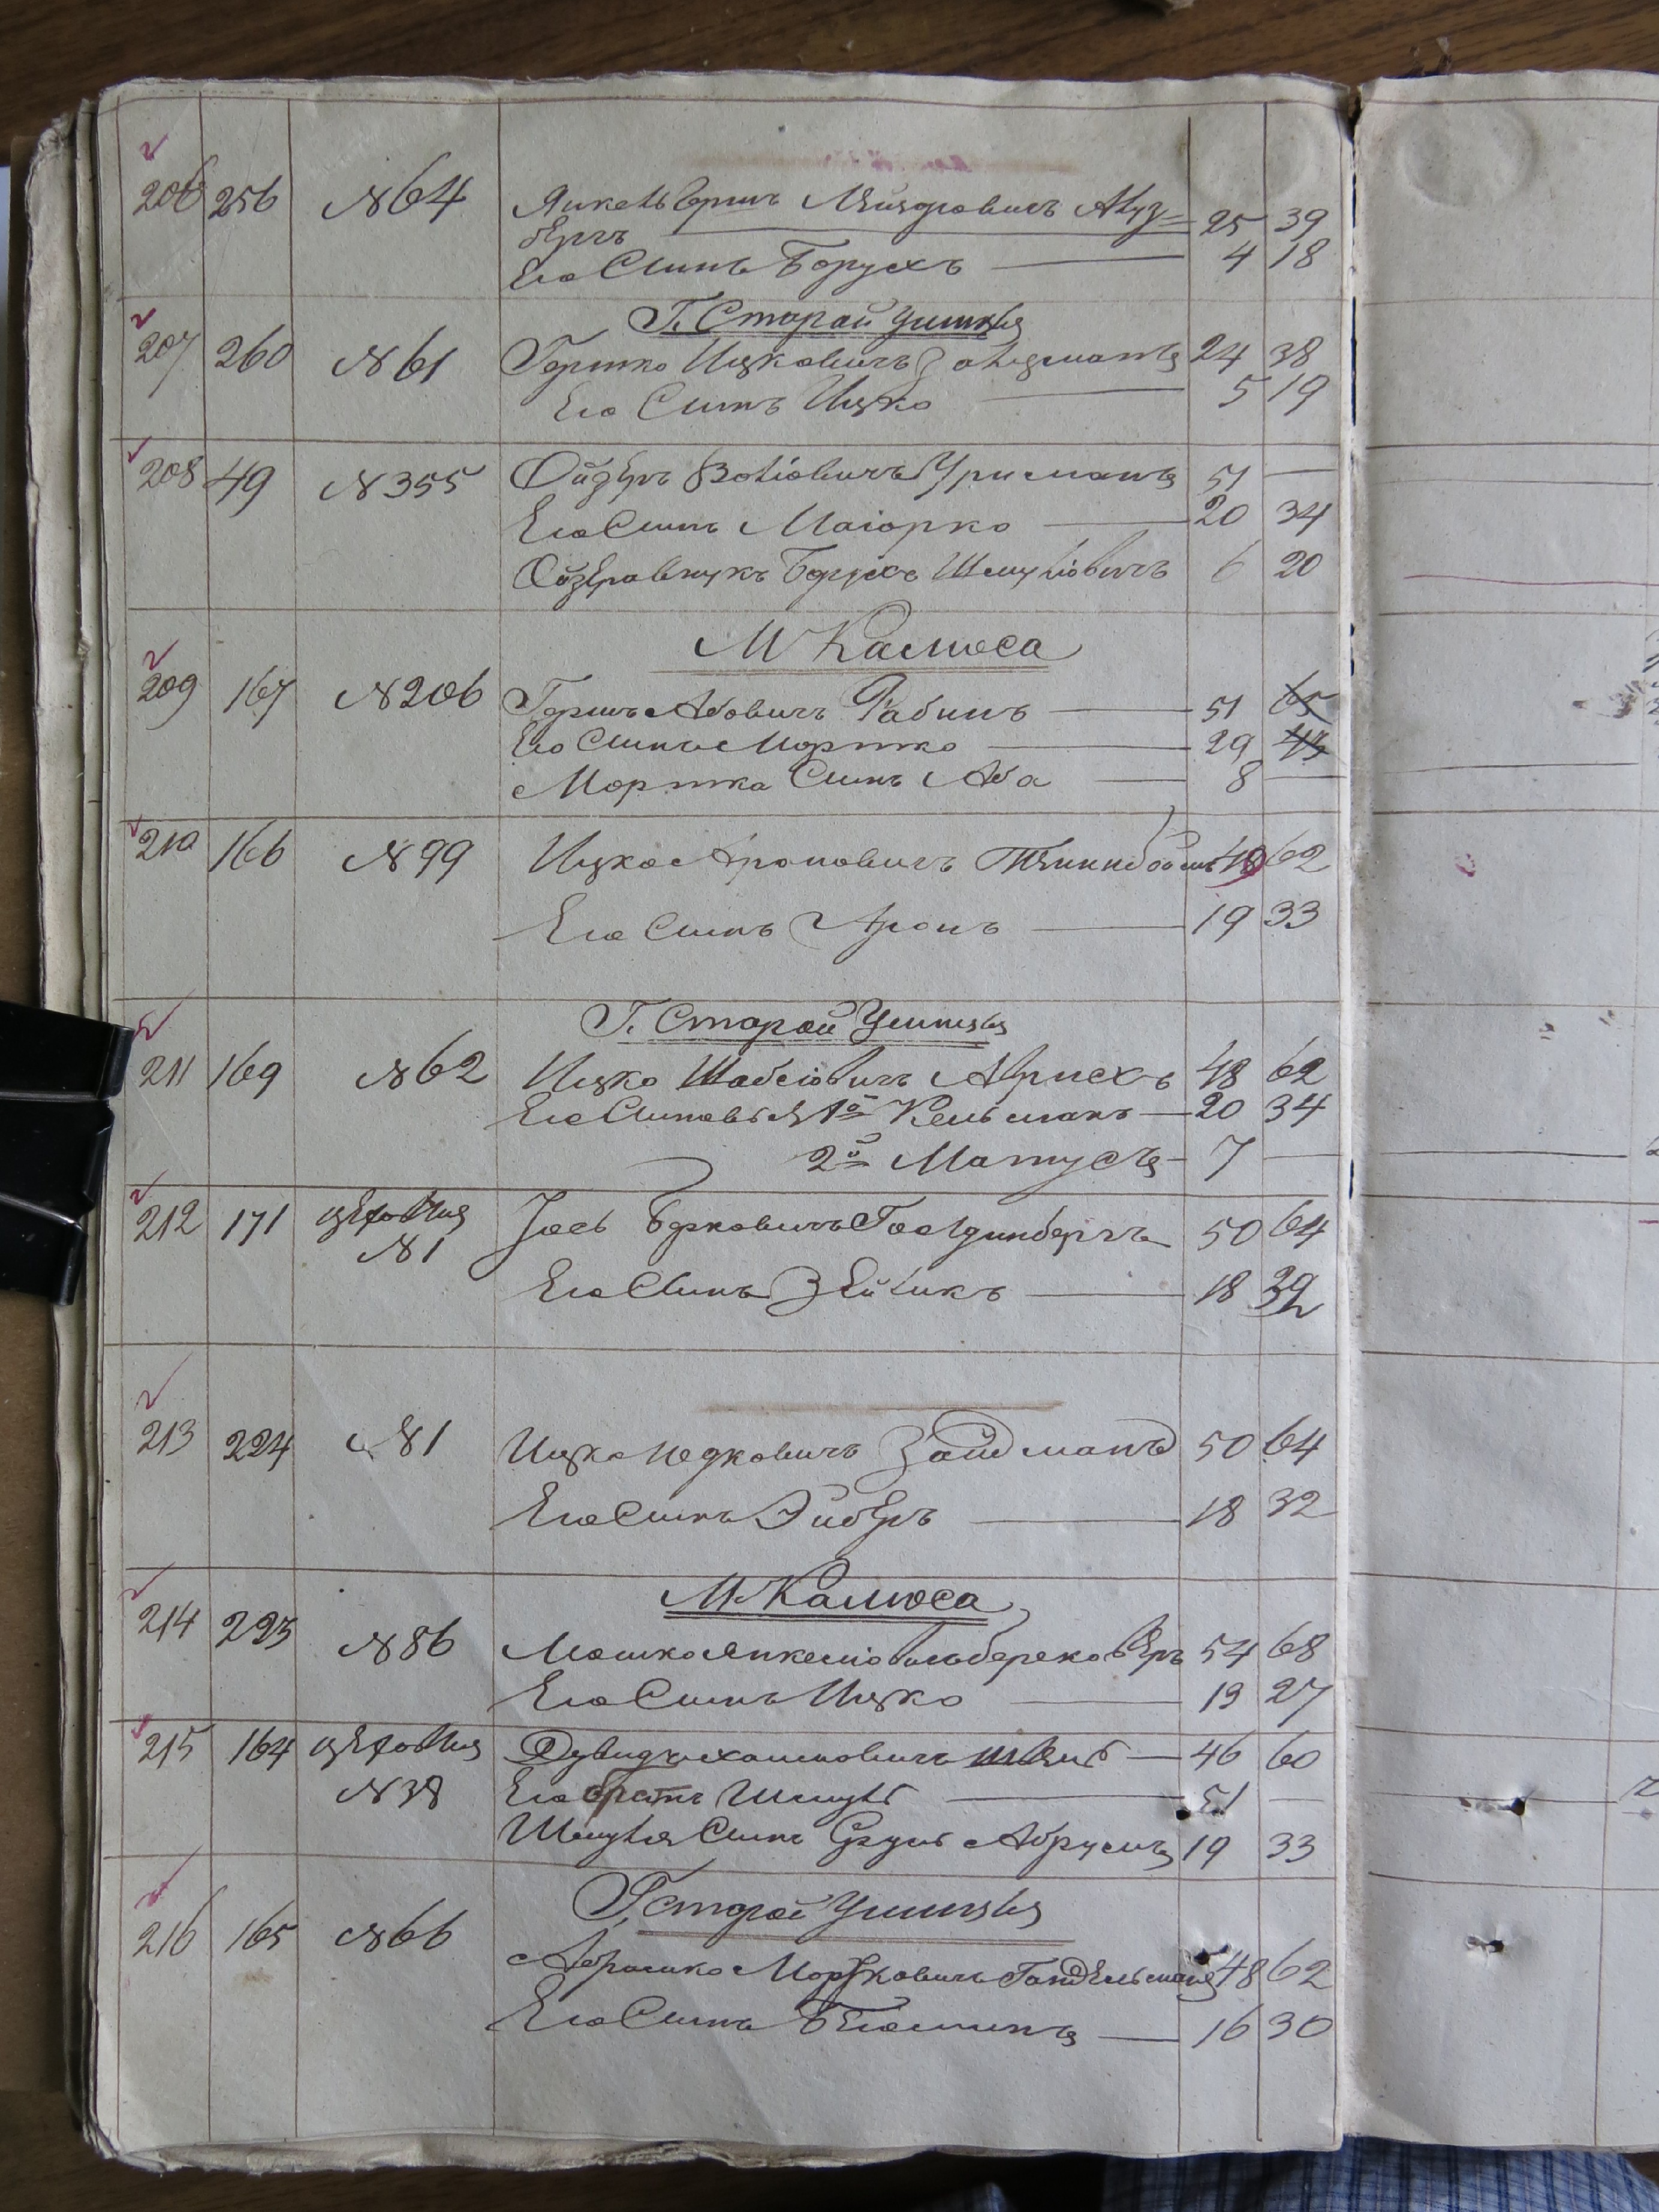 206 256 №64 Янкель Гершъ Лейзровичъ Ауз= 25 39
бергъ
Его Сынъ Борухъ 4 18
Г. Старой Ушицы
207 260 №61 Гершко Ицковичъ Зальцманъ 24 38
Его Сынъ Ицко 5 19
208 49 №355 Ойзеръ Волiовичъ Урисманъ 51 —
Его Сынъ Маiорко 20 34
Ойзера внукъ Борухъ Шмулiовичъ 6 20
М Калюса
209 167 №206 Гершъ Абовичъ Рабинъ 51 65
Его Сынъ Моршко 29 43
Моршка Сынъ Аба 8 —
210 166 №99 Ицко Ароновичъ 48 62
Его Сынъ Аронъ 19 33
Г. Старой Ушицы
211 169 №62 Ицко Шабсiовичъ 48 62
Его Сыновья 1й Кельманъ 20 34
2й Матусъ 7 —
212 171 №1 Iось Берковичъ Голдинбергъ 50 64
Его Сынъ Зейликъ 18 32
213 224 №81 Ицко Зайдманъ 50 64
Его Сынъ Эйберъ 18 32
М. Калюса
214 223 №86 Мошко 54 68
Его Сынъ Ицко 13 27
215 164 №38 Дувидъ Хаимовичъ 46 60
Его братъ Шмуль 51 —
Шмуля Сынъ Сруль Абрумъ 19 33
Г. Старой Ушицы
216 165 №66 Абрамко Моржковичъ Гандельманъ 48 62
Его Сынъ Бенюминъ 16 30